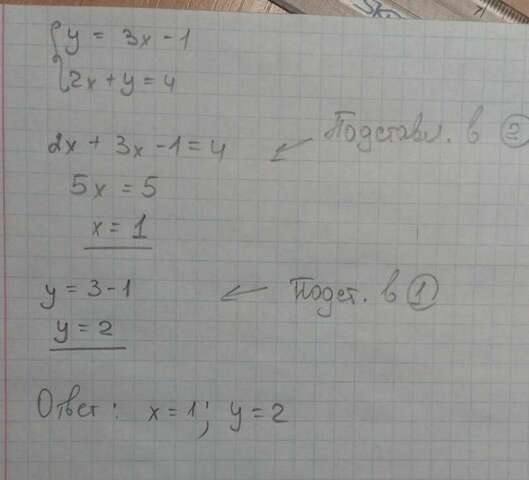 y = 3x - 1
2x + y = 4
2x + 3x - 1 = 4 ← Подставл. в ②
5x = 5
x = 1
y = 3 - 1 ← Подст. в ①
y = 2
Ответ: x = 1; y = 2